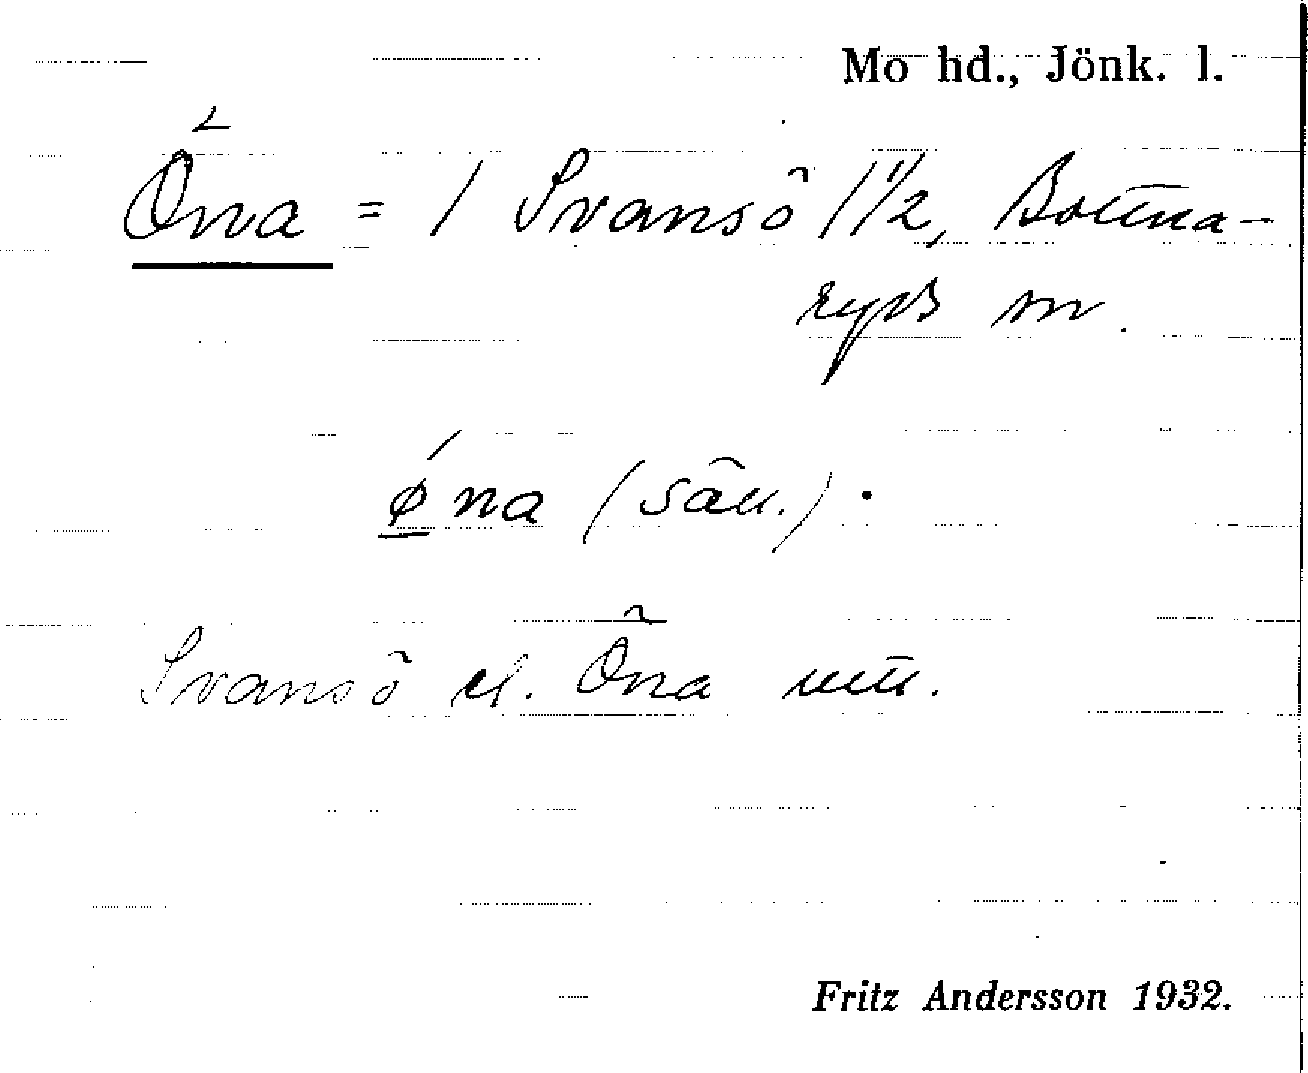 Mo hd., Jönk. l.
Öna = / Svansö 1 1/2, Bottna-
ryds sn.
ǿna (sän.).
Svansö el. Öna utt.
Fritz Andersson 1932.